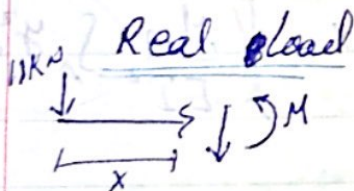 Real Load
11KN
M
x